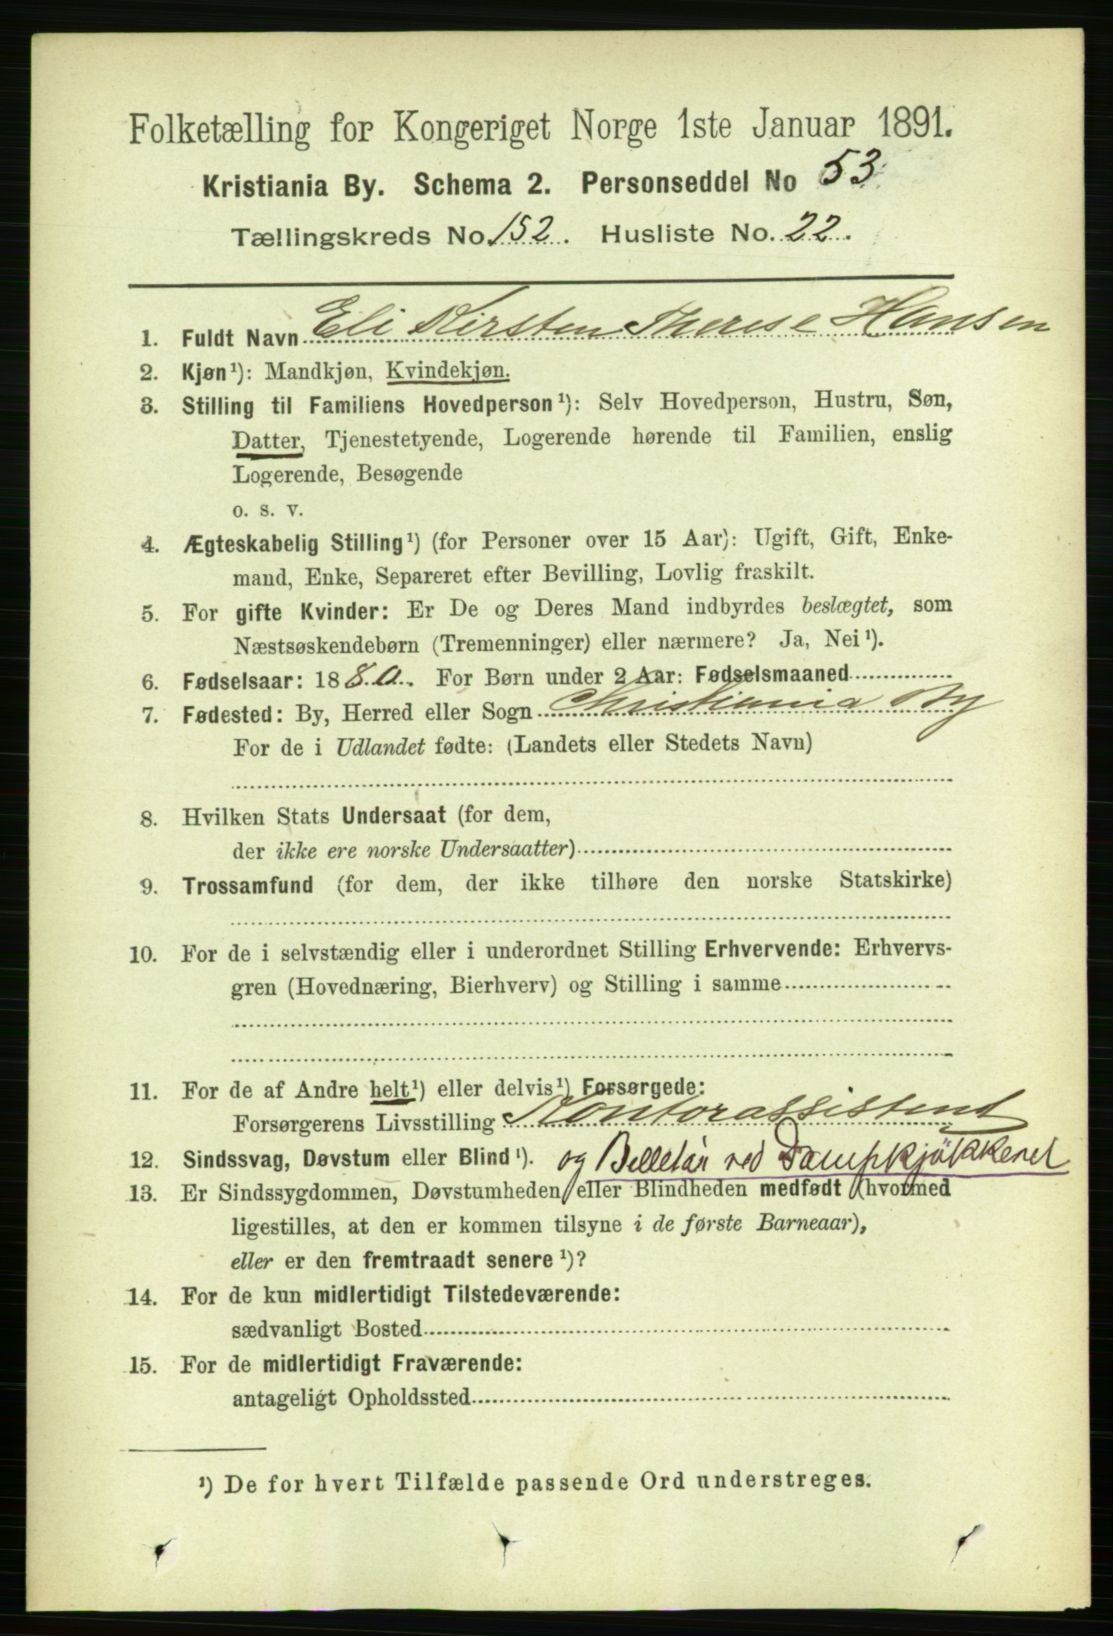 Folketælling for Kongeriget Norge 1ste Januar 1891.
Kristiania By. Schema 2. Personseddel No 53
Tællingskreds No. 152. Husliste No. 22.
1. Fuldt Navn Eli Kirsten Therese Hansen
2. Kjøn¹): Mandkjøn, Kvindekjøn.
3. Stilling til Familiens Hovedperson¹): Selv Hovedperson, Hustru, Søn,
Datter, Tjenestetyende, Logerende hørende til Familien, enslig
Logerende, Besøgende
o. s. v.
4. Ægteskabelig Stilling¹) (for Personer over 15 Aar): Ugift, Gift, Enke-
mand, Enke, Separeret efter Bevilling, Lovlig fraskilt.
5. For gifte Kvinder: Er De og Deres Mand indbyrdes beslægtet, som
Næstsøskendebørn (Tremenninger) eller nærmere? Ja, Nei¹).
6. Fødselsaar: 1880. For Børn under 2 Aar: Fødselsmaaned
7. Fødested: By, Herred eller Sogn Christiania By
For de i Udlandet fødte: (Landets eller Stedets Navn)
8. Hvilken Stats Undersaat (for dem,
der ikke ere norske Undersaatter)
9. Trossamfund (for dem, der ikke tilhøre den norske Statskirke)
10. For de i selvstændig eller i underordnet Stilling Erhvervende: Erhvervs-
gren (Hovednæring, Bierhverv) og Stilling i samme
11. For de af Andre helt¹) eller delvis¹) Forsørgede:
Forsørgerens Livsstilling Kontorassistent
12. Sindssvag, Døvstum eller Blind¹). og Belletär ved Dampkjøkkenet
13. Er Sindssygdommen, Døvstumheden eller Blindheden medfødt (hvormed
ligestilles, at den er kommen tilsyne i de første Barneaar),
eller er den fremtraadt senere¹)?
14. For de kun midlertidigt Tilstedeværende:
sædvanligt Bosted
15. For de midlertidigt Fraværende:
antageligt Opholdssted
¹) De for hvert Tilfælde passende Ord understreges.